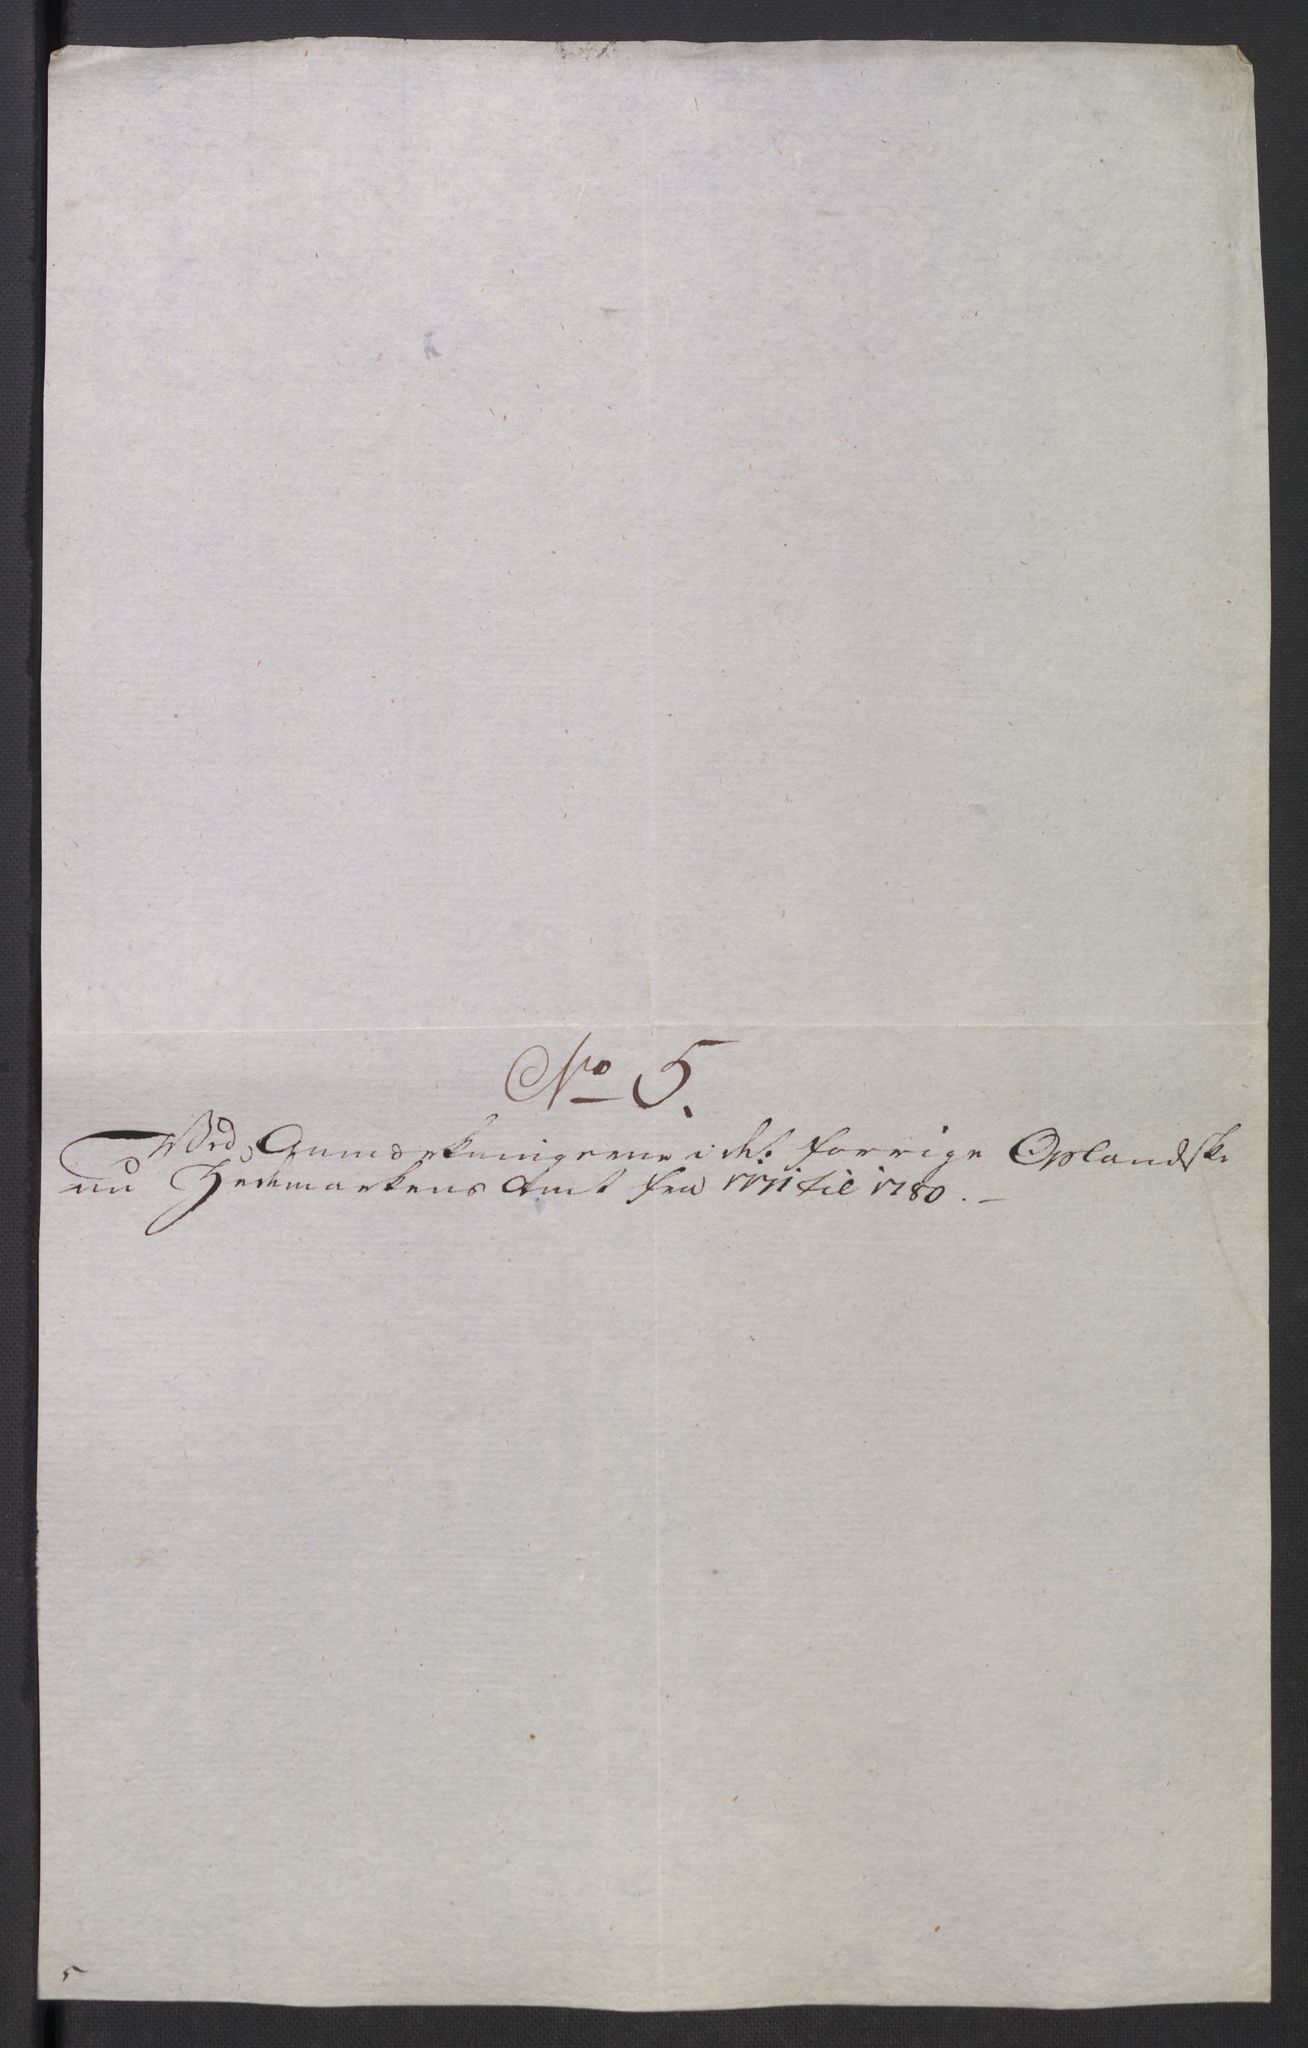 No 5.
Ved Anmærkningerne i det forrige Oplandske
nu Hedemarkens Amt fra 1771 til 1780. –
5